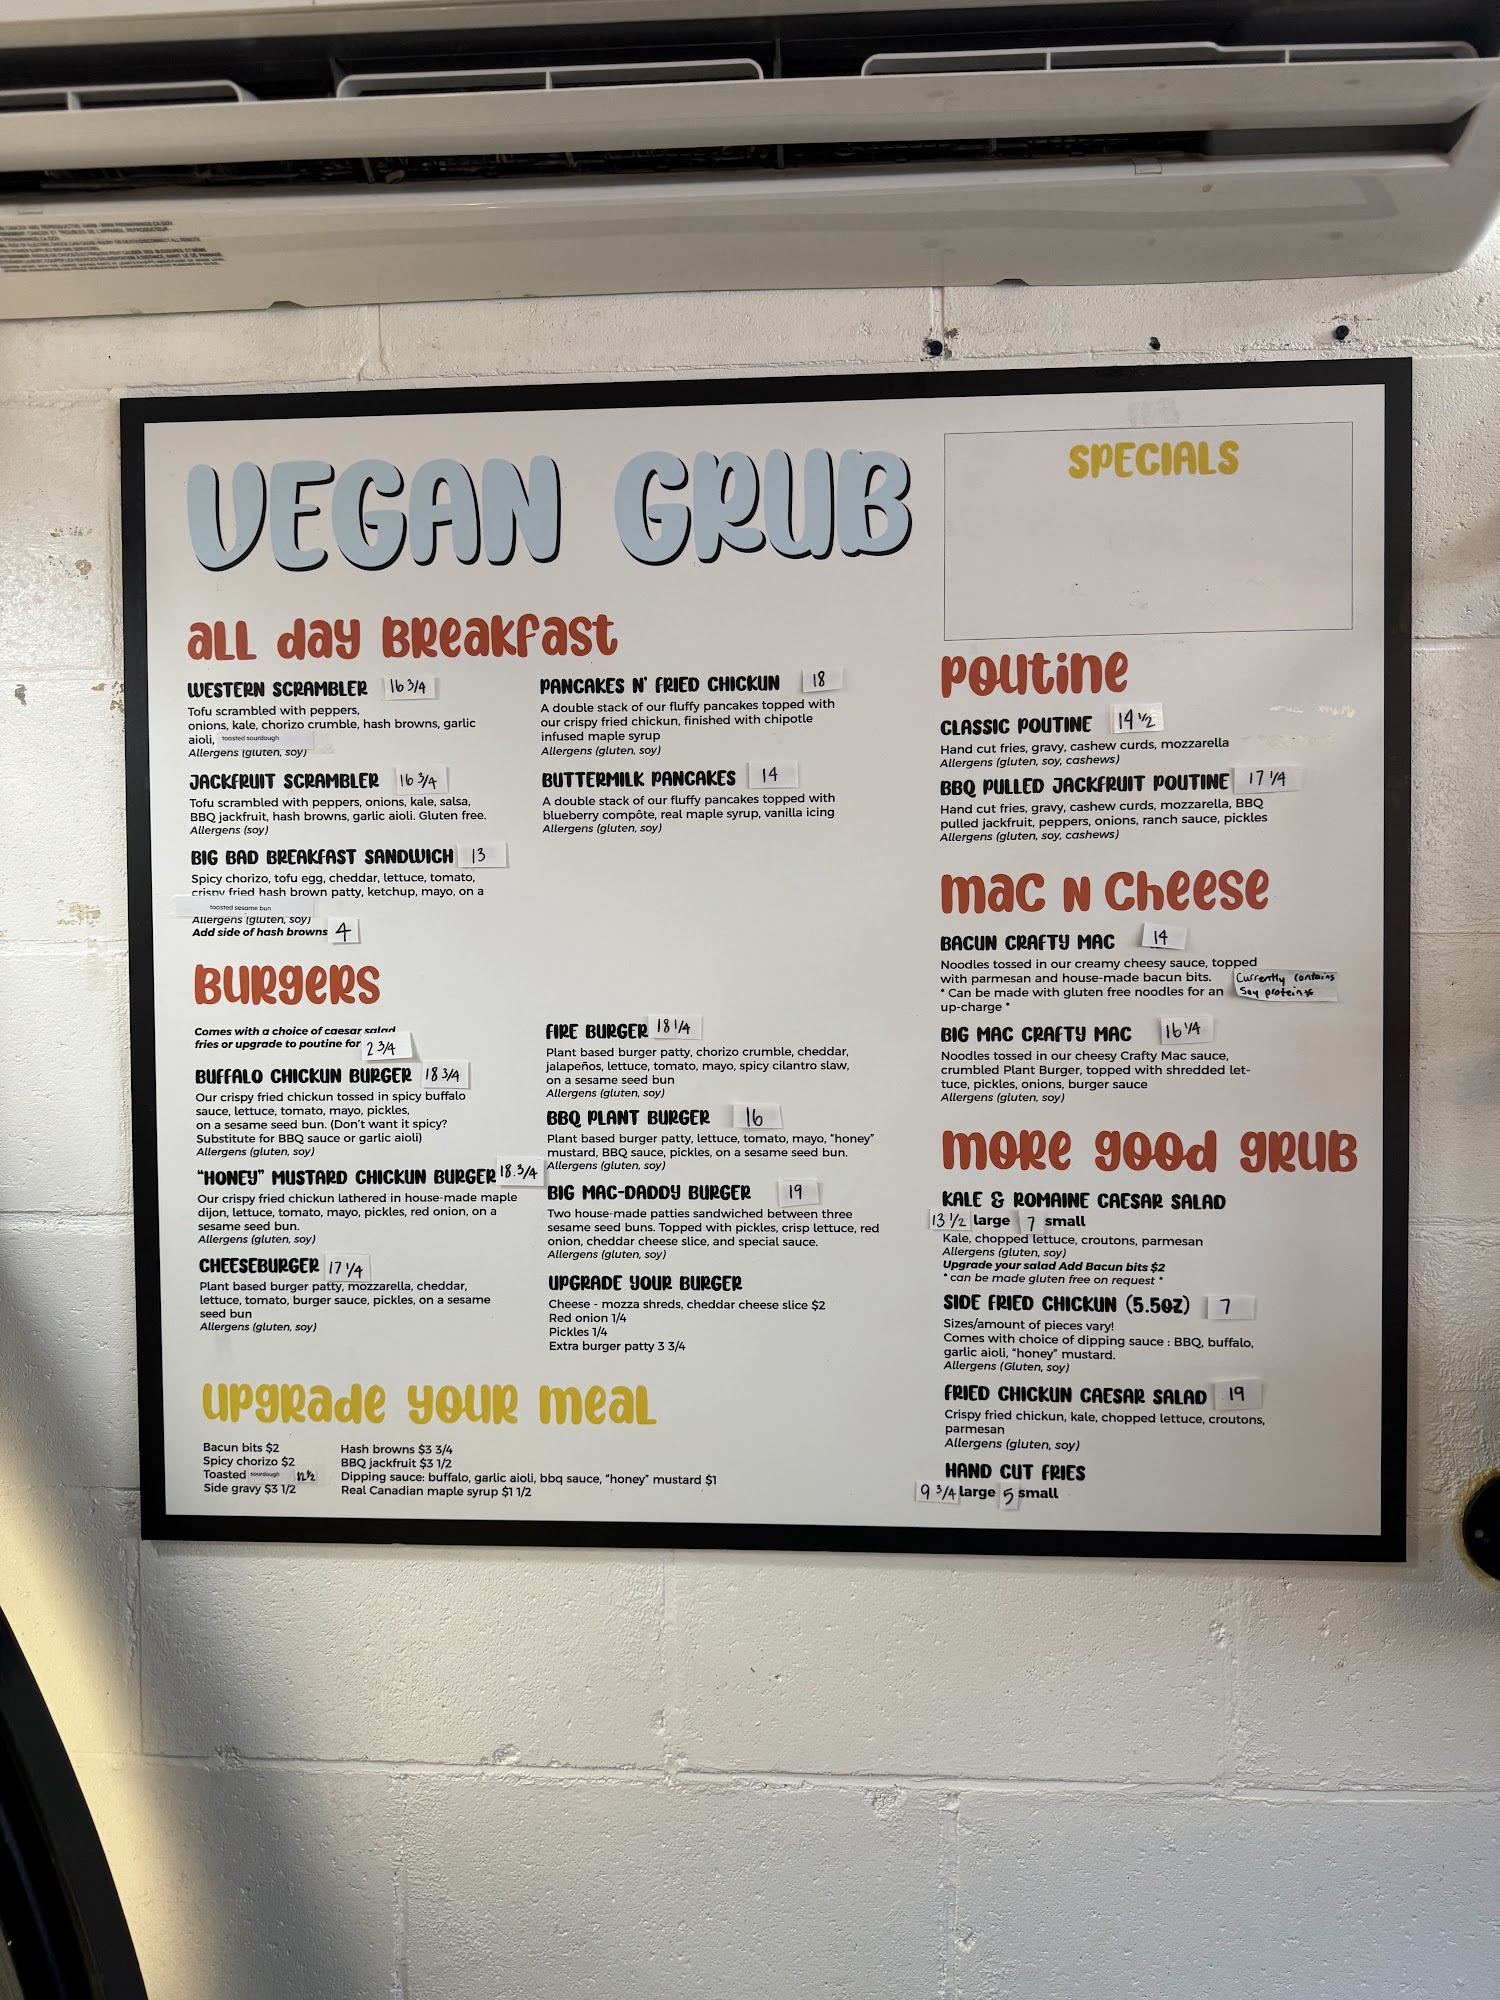 VEGAN GRUB
SPECIALS
ALL DAY BREAKFAST
WESTERN SCRAMBLER 16 3/4
Tofu scrambled with peppers,
onions, kale, chorizo crumble, hash browns, garlic
aioli, toasted sourdough
Allergens (gluten, soy)
JACKFRUIT SCRAMBLER 16 3/4
Tofu scrambled with peppers, onions, kale, salsa,
BBQ jackfruit, hash browns, garlic aioli. Gluten free.
Allergens (soy)
BIG BAD BREAKFAST SANDWICH 13
Spicy chorizo, tofu egg, cheddar, lettuce, tomato,
crispy fried hash brown patty, ketchup, mayo, on a
toasted sesame bun
Allergens (gluten, soy)
Add side of hash browns 4
PANCAKES N' FRIED CHICKUN 18
A double stack of our fluffy pancakes topped with
our crispy fried chickun, finished with chipotle
infused maple syrup
Allergens (gluten, soy)
BUTTERMILK PANCAKES 14
A double stack of our fluffy pancakes topped with
blueberry compôte, real maple syrup, vanilla icing
Allergens (gluten, soy)
BURGERS
Comes with a choice of caesar salad
fries or upgrade to poutine for 2 3/4
BUFFALO CHICKUN BURGER 18 3/4
Our crispy fried chickun tossed in spicy buffalo
sauce, lettuce, tomato, mayo, pickles,
on a sesame seed bun. (Don't want it spicy?
Substitute for BBQ sauce or garlic aioli)
Allergens (gluten, soy)
"HONEY" MUSTARD CHICKUN BURGER 18.3/4
Our crispy fried chickun lathered in house-made maple
dijon, lettuce, tomato, mayo, pickles, red onion, on a
sesame seed bun.
Allergens (gluten, soy)
CHEESEBURGER 17 1/4
Plant based burger patty, mozzarella, cheddar,
lettuce, tomato, burger sauce, pickles, on a sesame
seed bun
Allergens (gluten, soy)
FIRE BURGER 18 1/4
Plant based burger patty, chorizo crumble, cheddar,
jalapeños, lettuce, tomato, mayo, spicy cilantro slaw,
on a sesame seed bun
Allergens (gluten, soy)
BBQ PLANT BURGER 16
Plant based burger patty, lettuce, tomato, mayo, "honey"
mustard, BBQ sauce, pickles, on a sesame seed bun.
Allergens (gluten, soy)
BIG MAC-DADDY BURGER 19
Two house-made patties sandwiched between three
sesame seed buns. Topped with pickles, crisp lettuce, red
onion, cheddar cheese slice, and special sauce.
Allergens (gluten, soy)
UPGRADE YOUR BURGER
Cheese - mozza shreds, cheddar cheese slice $2
Red onion 1/4
Pickles 1/4
Extra burger patty 3 3/4
UPGRADE YOUR MEAL
Bacun bits $2
Spicy chorizo $2
Toasted sourdough
Side gravy $3 1/2
Hash browns $3 3/4
BBQ jackfruit $3 1/2
Dipping sauce: buffalo, garlic aioli, bbq sauce, "honey" mustard $1
Real Canadian maple syrup $1 1/2
POUTINE
CLASSIC POUTINE 14 1/2
Hand cut fries, gravy, cashew curds, mozzarella
Allergens (gluten, soy, cashews)
BBQ PULLED JACKFRUIT POUTINE 17 1/4
Hand cut fries, gravy, cashew curds, mozzarella, BBQ
pulled jackfruit, peppers, onions, ranch sauce, pickles
Allergens (gluten, soy, cashews)
MAC N CHEESE
BACUN CRAFTY MAC 14
Noodles tossed in our creamy cheesy sauce, topped
with parmesan and house-made bacun bits. Currently contains
* Can be made with gluten free noodles for an Soy protein*
up-charge *
BIG MAC CRAFTY MAC 16 1/4
Noodles tossed in our cheesy Crafty Mac sauce,
crumbled Plant Burger, topped with shredded let-
tuce, pickles, onions, burger sauce
Allergens (gluten, soy)
MORE GOOD GRUB
KALE & ROMAINE CAESAR SALAD
13 1/2 large 7 small
Kale, chopped lettuce, croutons, parmesan
Allergens (gluten, soy)
Upgrade your salad Add Bacun bits $2
* can be made gluten free on request *
SIDE FRIED CHICKUN (5.5OZ) 7
Sizes/amount of pieces vary!
Comes with choice of dipping sauce : BBQ, buffalo,
garlic aioli, "honey" mustard.
Allergens (Gluten, soy)
FRIED CHICKUN CAESAR SALAD 19
Crispy fried chickun, kale, chopped lettuce, croutons,
parmesan
Allergens (gluten, soy)
HAND CUT FRIES
9 3/4 large 5 small